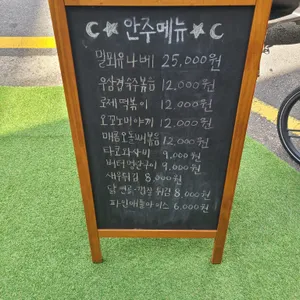 안주메뉴
밀푀유나베 25,000원
우삼겹숙주볶음 12,000원
로제떡볶이 12,000원
오꼬노미야끼 12,000원
매콤오돌뼈볶음 12,000원
타코와사비 9,000원
버터명란구이 9,000원
새우튀김 8,000원
닭 튀김 8,000원
파인애플아이스 6,000원